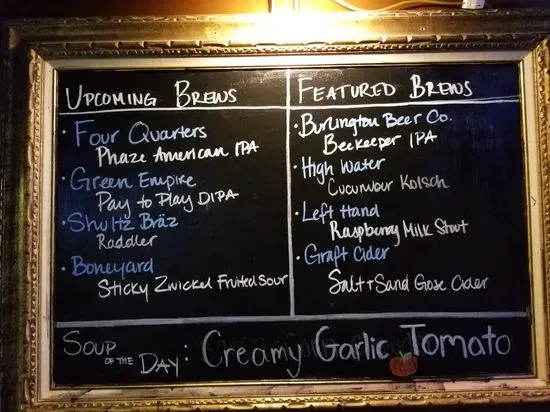 UPCOMING BREWS
· Four Quarters
Phaze American IPA
· Green Empire
Pay to Play DIPA
· Shultz Bräz
Raddler
· Boneyard
Sticky Zwickel Fruited Sour
FEATURED BREWS
· Burlington Beer Co.
Beekeeper IPA
· High Water
Cucumbur Kolsch
· Left Hand
Raspberry Milk Stout
· Graft Cider
Salt + Sand Gose Cider
SOUP OF THE DAY: Creamy Garlic Tomato